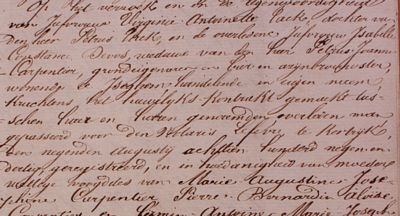 Op het verzoek en in de tegenwoordigheid
van Jufvrouw Virginie Antoinette Valcke, dochter van
den heer Petrus Valcke, en de overledene Jufvrouw Isabelle
Constance Devos, weduwe van den heer Petrus Joannes
Carpentier, grondeigenaar en bier en azijnbrouwer,
wonende te handelende in eigen naam
Krachtens het huwelijks kontrakt gemaakt tus-
schen haar en haren genoemden overleden man
gepasseerd voor den Notaris Lefevre te Kortrijk
den negenden augusty achttien honderd negen en
dertig geregistreerd, en in hoedanigheid van moeder
wettige voogdes van Marie Augustine Jose-
phine Carpentier Pierre Bernardin Aloïse
Carpentier en Antoine Marie Joseph